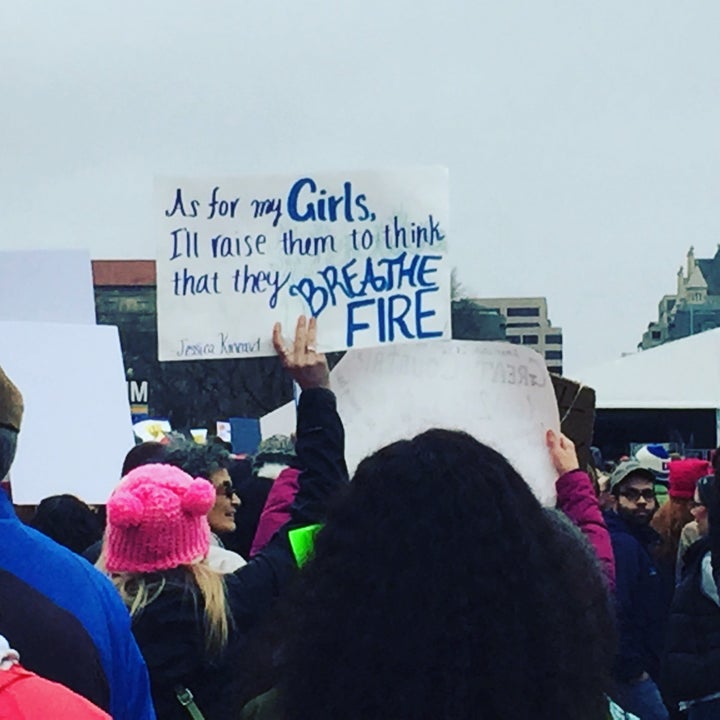 As for my Girls,
I'll raise them to think
that they BREATHE
FIRE
Jessica Kinrad
M
GREAT